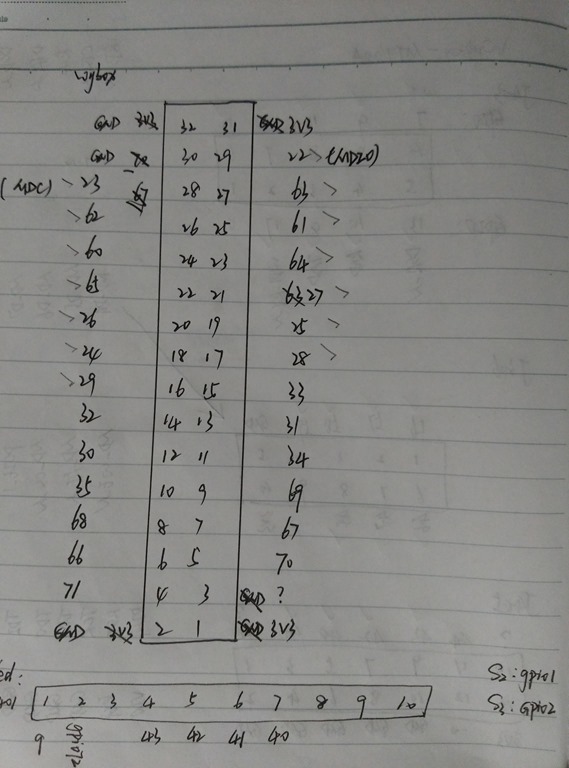 GND 3V3 32 31 GND 3V3
GND 30 29 22 > (MDIO)
(MDC) > 23 67 28 27 63 >
> 62 26 25 61 >
> 60 24 23 64 >
> 65 22 21 63 27 >
> 26 20 19 25 >
> 24 18 17 28 >
> 29 16 15 33
32 14 13 31
30 12 11 34
35 10 9 69
68 8 7 67
66 6 5 70
71 4 3 GND ?
GND 3V3 2 1 GND 3V3
S2: gpio1
1 2 3 4 5 6 7 8 9 10 S3: GPIO2
9 gpio12 43 42 41 40